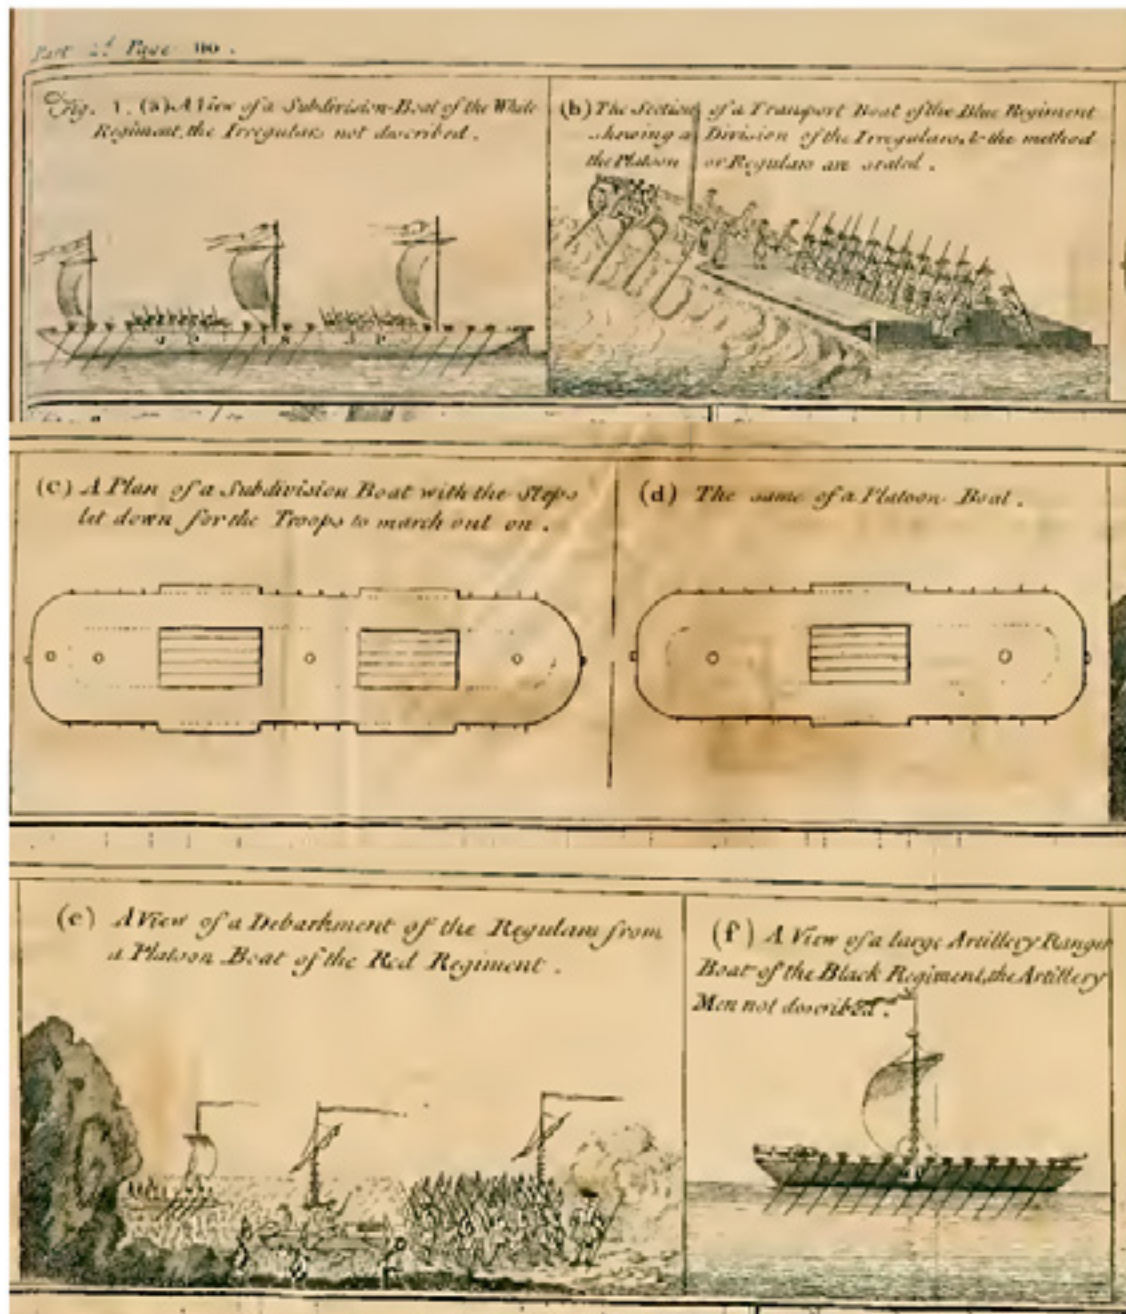 Part 2d Page 110.
Fig. 1. (a) A View of a Subdivision-Boat of the White
Regiment, the Irregulars not described.
(b) The Section of a Transport Boat of the Blue Regiment
shewing a Division of the Irregulars, & the method
the Platoon or Regulars are seated.
(c) A Plan of a Subdivision Boat with the Steps
let down for the Troops to march out on.
(d) The same of a Platoon Boat.
(e) A View of a Debarkment of the Regulars from
a Platoon Boat of the Red Regiment.
(f) A View of a large Artillery Ranger
Boat of the Black Regiment, the Artillery
Men not described.